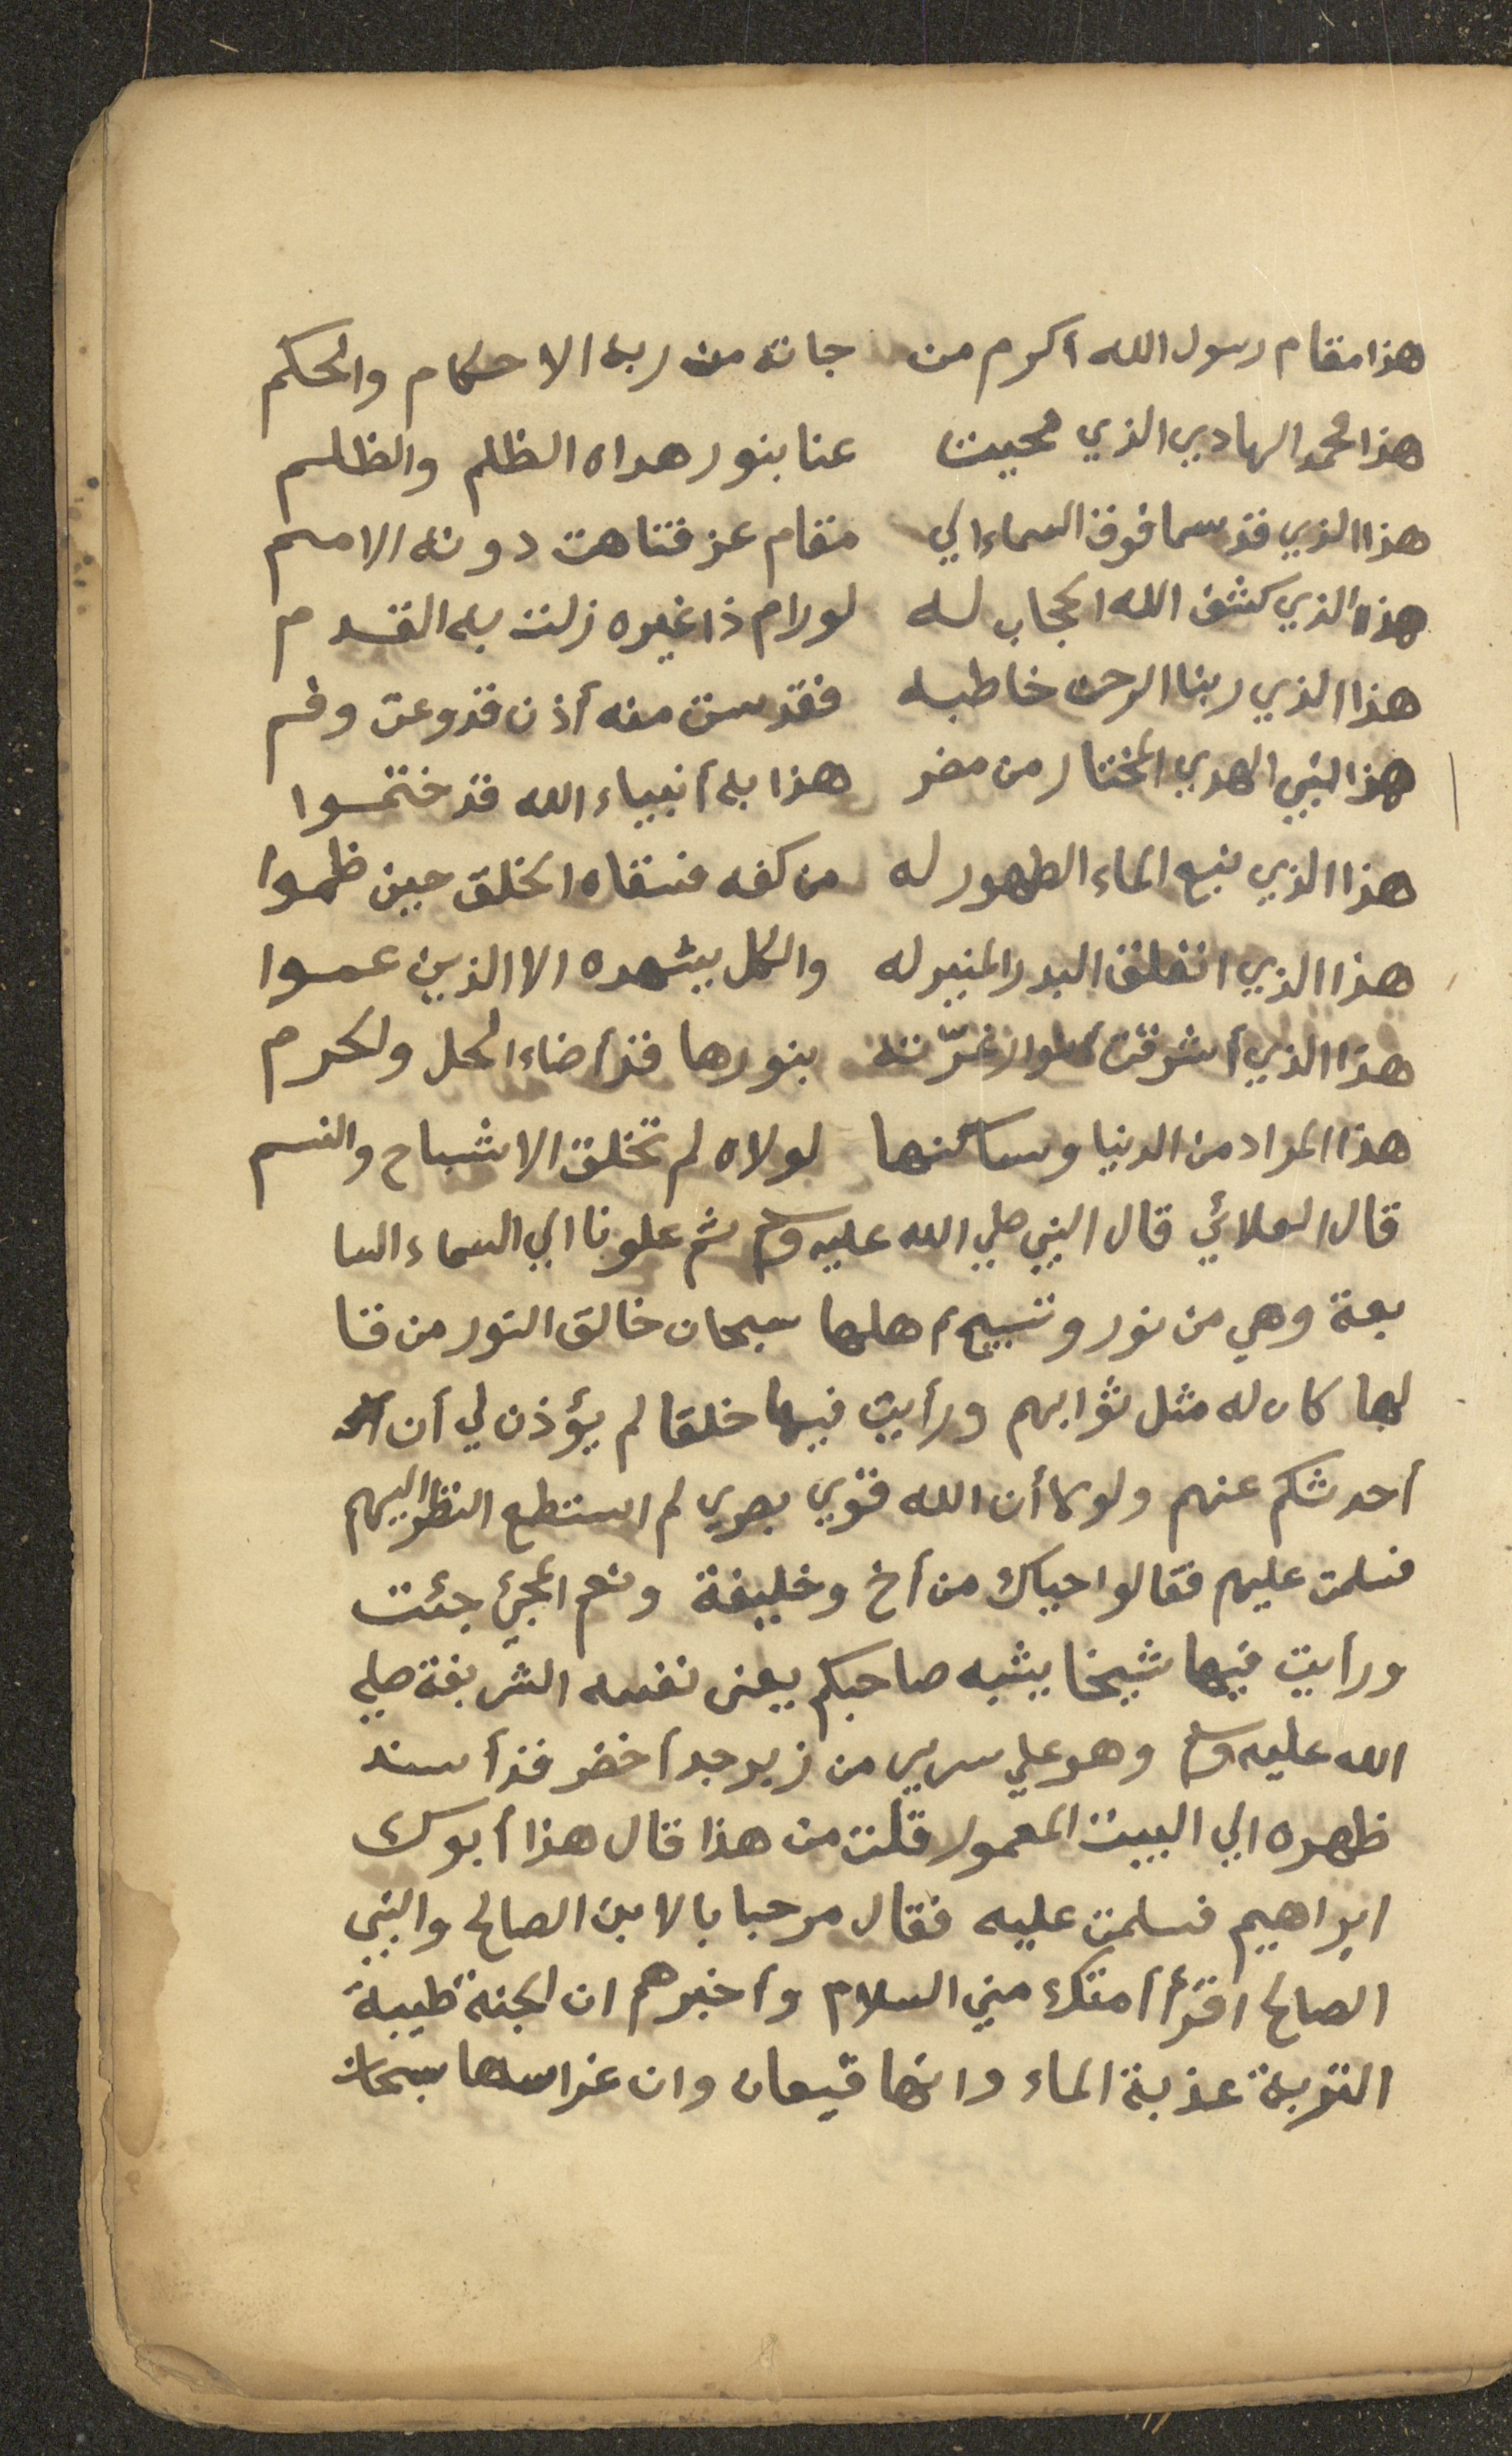 هذا مقام رسول الله أكرم من جاته من ربه الاحكام والحكم
هذا محمد الهادي الذي محيت عنا بنور هداه الظلم والظلم
هذا الذي قد سما فوق السماء الي مقام عز فتناهت دونه الامم
هذا الذي كشف الله الحجاب له لو رام ذا غيره زلت به القدم
هذا الذي ربنا الرحمن خاطبه فقدست منه أذن قد وعت وفم
هذا النبي الهدي المختار من مضر هذا به أنبياء الله قد ختموا
هذا الذي نبع الماء الطهور له من كفه فسقاه الخلق حين ظموا
هذا الذي انفلق البدر المنير له والكل يشهده الا الذين عموا
هذا الذي أشرقت أنوار غرّته بنورها قد أضاء الحل والحرم
هذا المراد من الدنيا وساكنها لولاه لم تخلق الاشباح والنسم
قال العلائي قال النبي صلي الله عليه وسلم ثم علونا الي السماء السا
بعة وهي من نور وتسبيح أهلها سبحان خالق النور من قا
لها كان له مثل ثوابهم ورأيت فيها خلقا لم يؤذن لي أن
أحدثكم عنهم ولولا أن الله قوي بصري لم استطع النظر اليهم
فسلمت عليهم فقالوا حياك من أخ وخليفة ونعم المجئ جئت
ورأيت فيها شيخا يشبه صاحبكم يعنى نفسه الشريفة صلي
الله عليه وسلم وهو علي سرير من زبرجد أخضر قد أسند
ظهره الي البيت المعمور قلت من هذا قال هذا أبوك
ابراهيم فسلمت عليه فقال مرحبا بالابن الصالح والنبي
الصالح اقرأ أمتك مني السلام وأخبرهم ان الجنة طيبة
التربة عذبة الماء وانها قيعان وان غراسها سبحان